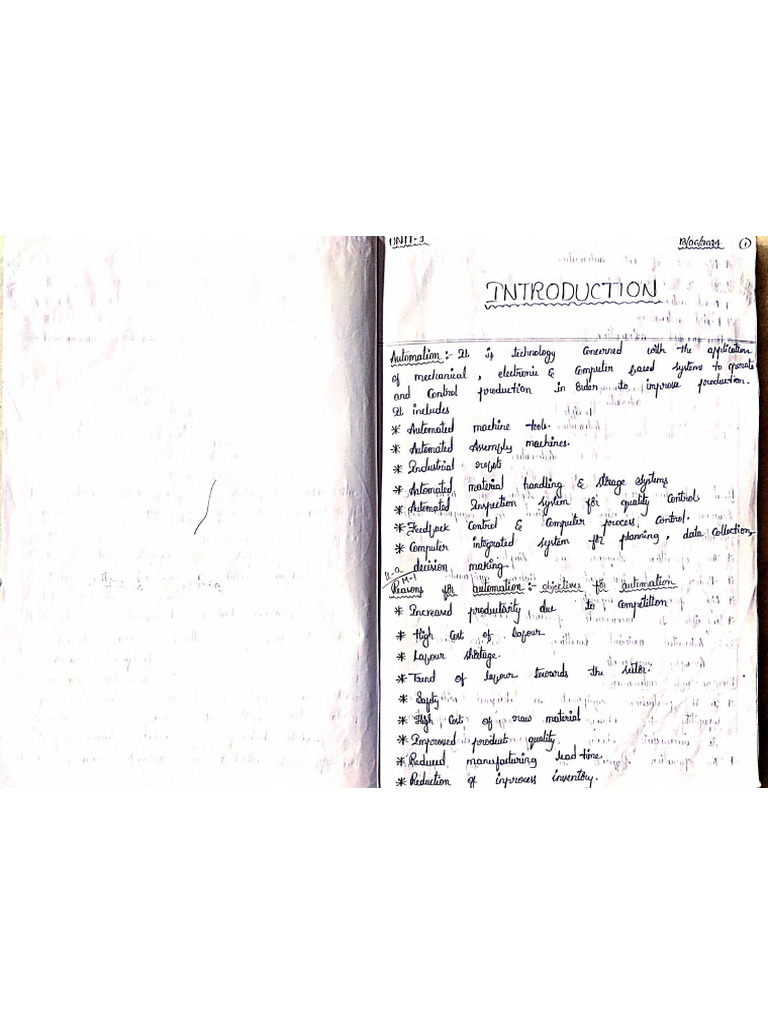 UNIT-1
①
INTRODUCTION
Automation :- It is technology concerned with the application
of mechanical, electronic & Computer based systems to operate
and Control production in order to improve production.
It includes
* Automated machine tools.
* Automated Assembly machines.
* Industrial robots
* Automated material handling & storage systems
* Automated Inspection system for quality Control
* Feedback Control & Computer process control.
* Computer integrated system for planning, data Collection
decision making.
M-1
Reasons for automation:- objectives for automation
* Increased productivity due to competition
* High Cost of labour
* Labour shortage.
* Trend of labour towards the sector.
* Safety
* High Cost of raw material
* Improved product quality
* Reduced manufacturing lead-time
* Reduction of inprocess inventory.